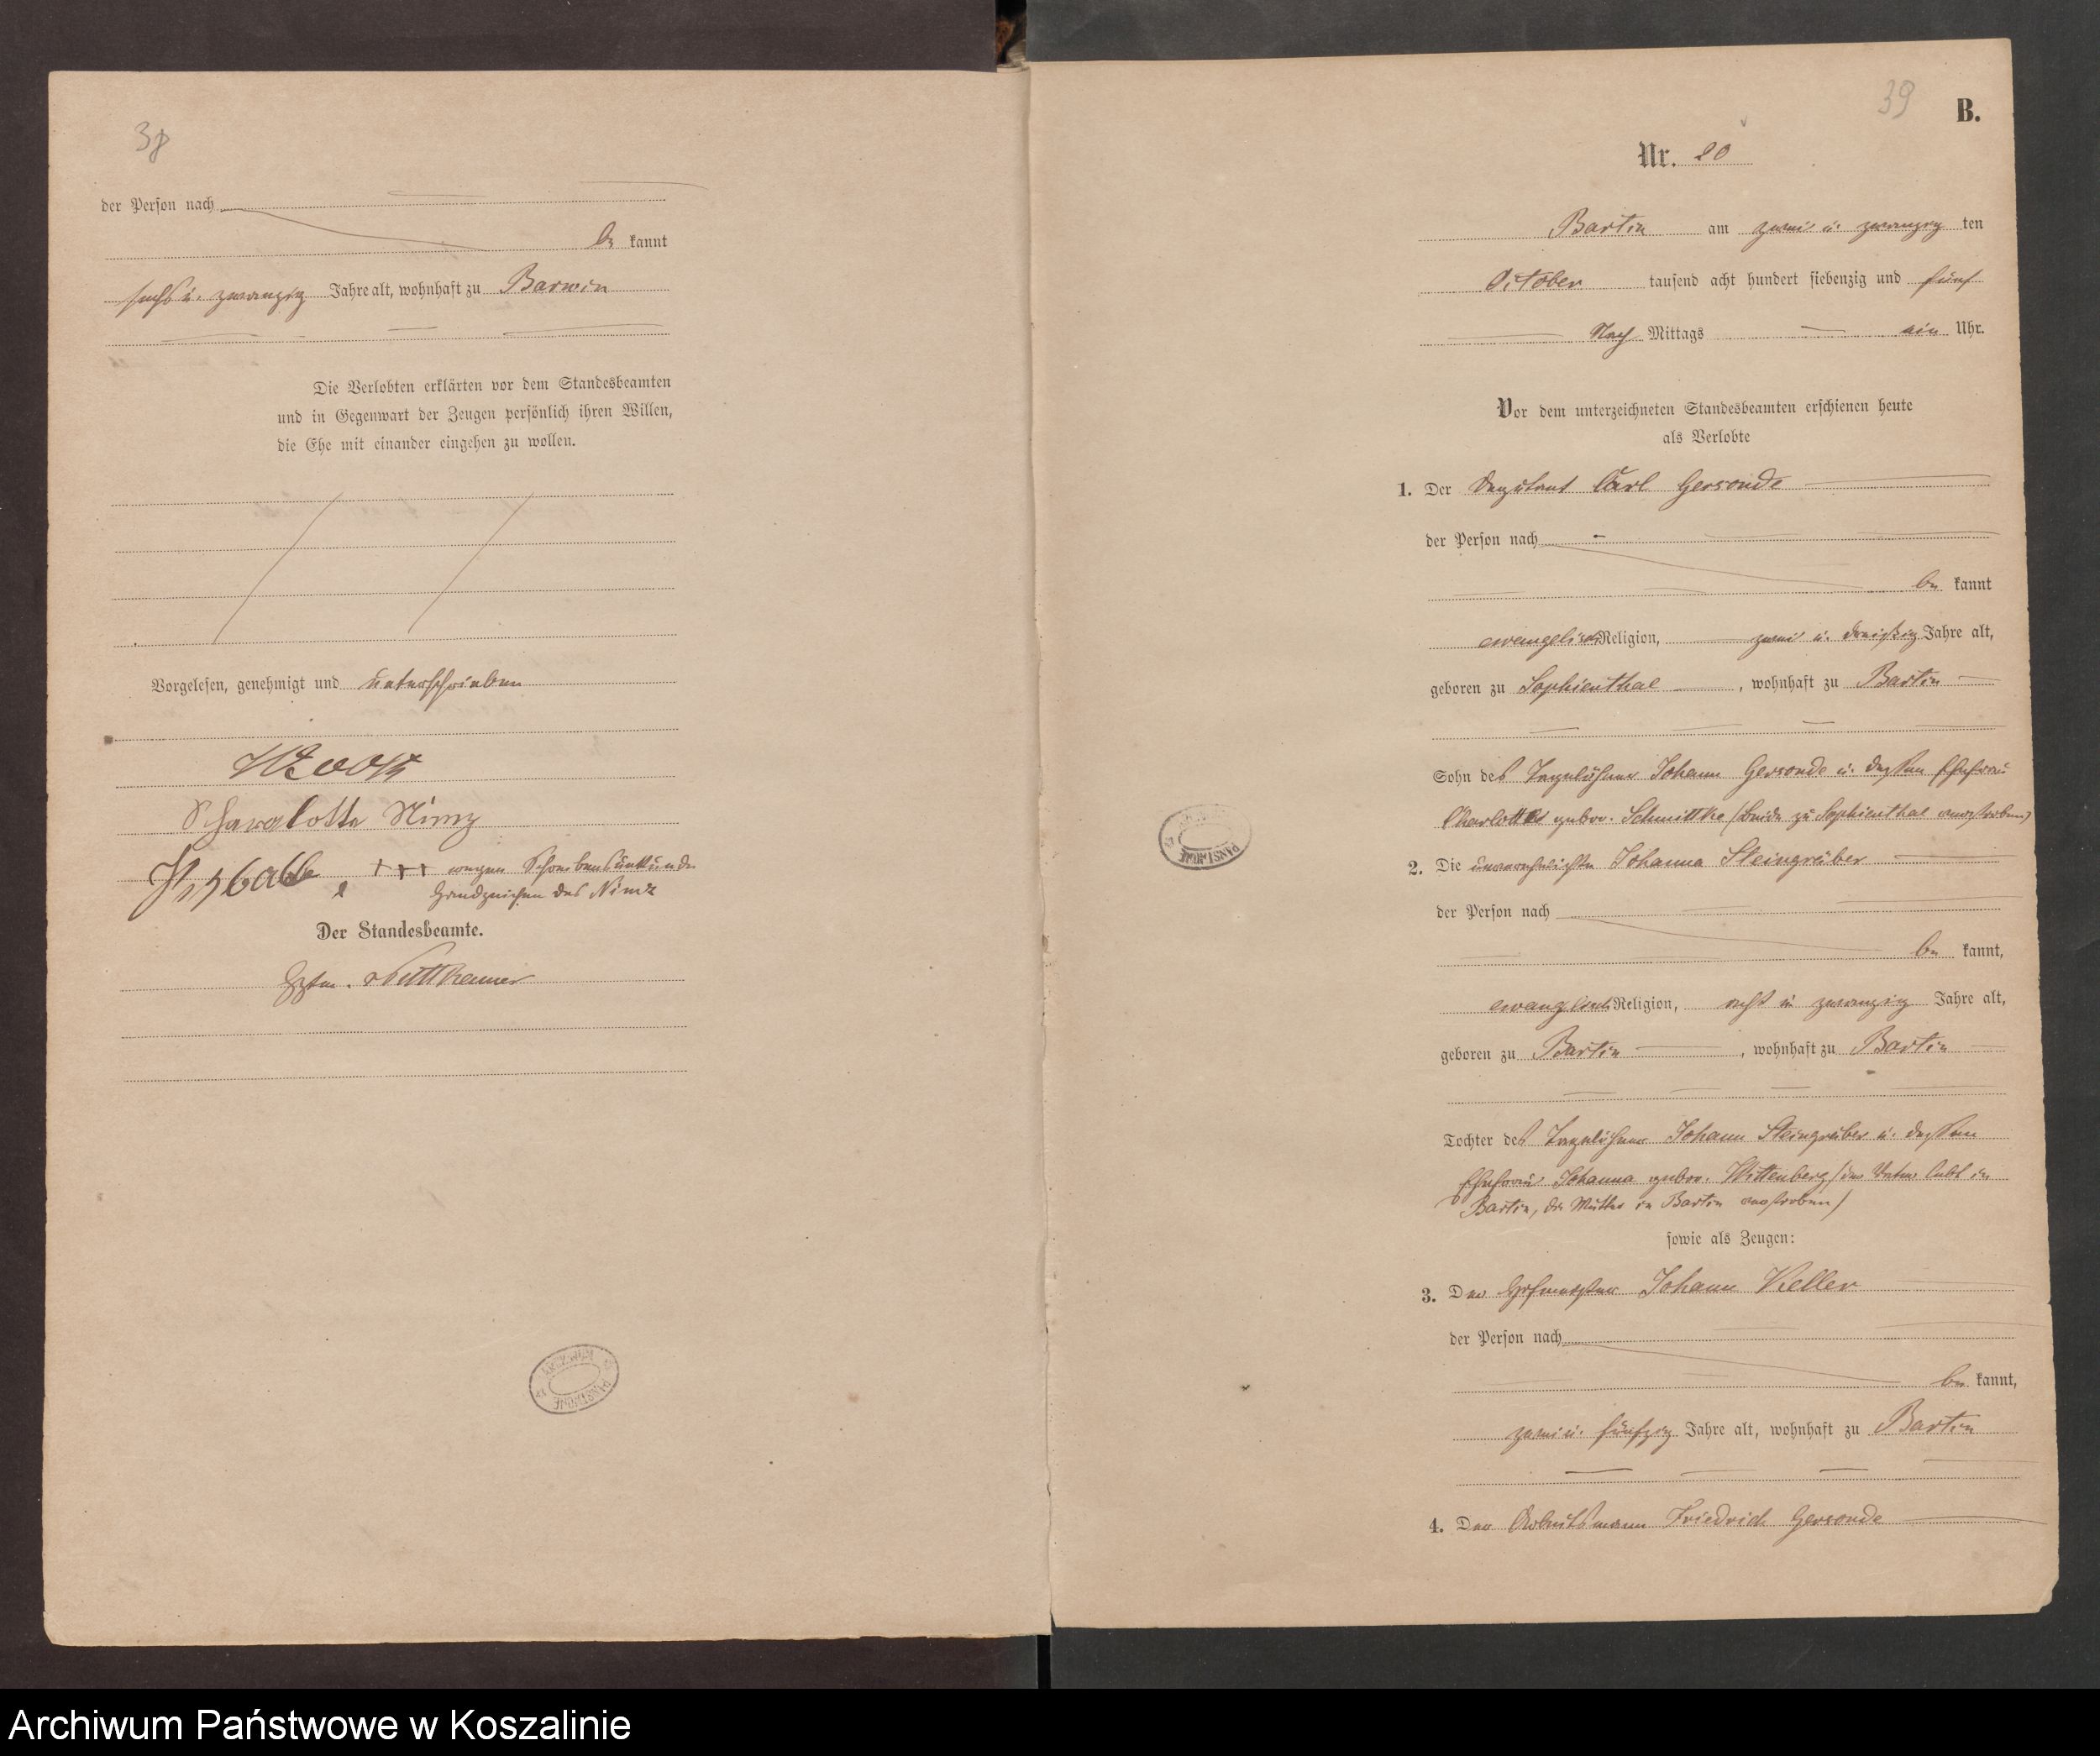 38
der Person nach
be kannt
sechs u. zwanzig Jahre alt, wohnhaft zu Barwin
Die Verlobten erklärten vor dem Standesbeamten
und in Gegenwart der Zeugen persönlich ihren Willen,
die Ehe mit einander eingehen zu wollen.
Vorgelesen, genehmigt und unterschrieben
Scharalotte Nimz
+++ wegen Schreibensunkunde
Handzeichen des Nimz
Der Standesbeamte.
39
B.
Nr. 20
Bartin am zwei u. zwanzig ten
October tausend acht hundert siebenzig und fünf
Nach Mittags ein Uhr.
Vor dem unterzeichneten Standesbeamten erschienen heute
als Verlobte
1. Der Deputant Carl Gersonde
der Person nach
be kannt
evangelisch Religion, zwei u. dreißig Jahre alt,
geboren zu Sophienthal, wohnhaft zu Bartin
Sohn des Tagelöhner Johann Gersonde u. dessen Ehefrau
Charlotte gebor. Schmittke (beide zu Sophienthal verstorben)
2. Die unverehelichte Johanna Steingräber
der Person nach
be kannt,
evangelisch Religion, acht u zwanzig Jahre alt,
geboren zu Bartin, wohnhaft zu Bartin
Tochter des Tagelöhner Johann Steingräber u. dessen
Ehefrau Johanna gebor. Wittenberg (der Vater lebt in
Bartin, die Mutter in Bartin verstorben)
sowie als Zeugen:
3. Der Hofmeister Johann Keller
der Person nach
be kannt,
zwei u. fünfzig Jahre alt, wohnhaft zu Bartin
4. Der Arbeitsmann Friedrich Gersonde
Archiwum Państwowe w Koszalinie